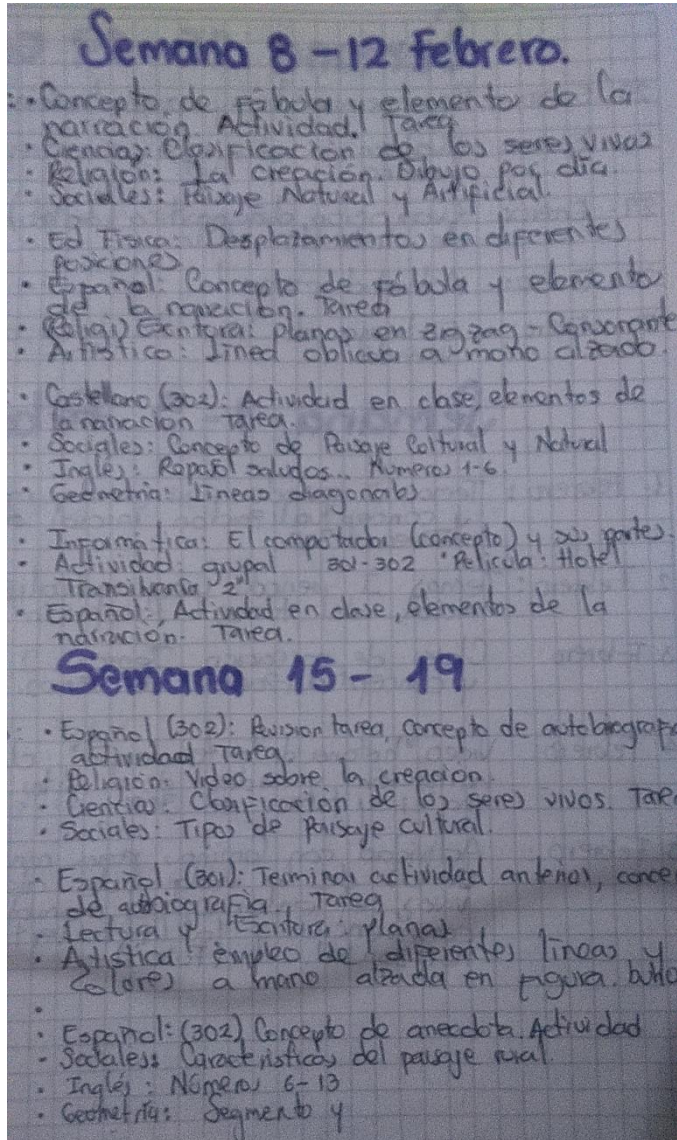 Semana 8-12 Febrero.
• Concepto de Fábula y elemento de la
narración. Actividad. Tarea
• Ciencias: Clasificación de los seres vivos
• Religión: La creación. Dibujo por día.
• Sociales: Paisaje Natural y Artificial.
• Ed Física: Desplazamientos en diferentes
posiciones
• Español: Concepto de fábula y elemento
de la narración. Tarea
• Escritura: planas en zigzag - Consonante
• Artística: Línea oblicua a mano alzada.
• Castellano (302): Actividad en clase, elementos de
la narración Tarea.
• Sociales: Concepto de Paisaje Cultural y Natural
• Inglés: Repaso saludos... Números 1-6
• Geometría: Líneas diagonales
• Informática: El computador (concepto) y sus partes.
• Actividad grupal 301-302 "Película: Hotel
Transilvania 2"
• Español: Actividad en clase, elementos de la
narración. Tarea.
Semana 15 - 19
• Español (302): Revision tarea, concepto de autobiografi
actividad Tarea
• Religión: Video sobre la creación
• Ciencias: Clasificación de los seres vivos. Tare
• Sociales: Tipos de Paisaje cultural.
• Español (301): Terminar actividad anterior, conce
de autobiografía, Tarea
• Lectura y Escritura: planas
• Artística: empleo de diferentes líneas y
colores a mano alzada en figura. buho
•
• Español: (302) Concepto de anecdota. Actividad
• Sociales: Características del paisaje rural
• Inglés: Números 6-13
• Geometría: Segmento y